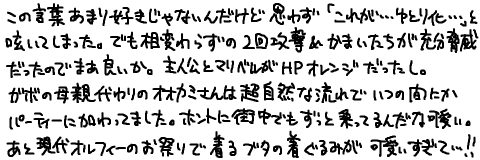 この言葉あまり好きじゃないんだけど思わず「これが…ゆとり化…」と
呟いてしまった。でも相変わらずの2回攻撃&かまいたちが充分脅威
だったのでまあ良いか。主人公とマリベルがHPオレンジだったし。
ガボの母親代わりのオオカミさんは超自然な流れでいつの間にか
パーティーに加わってました。ホントに街中でもずっと乗ってるんだな可愛い。
あと現代オルフィーのお祭りで着るブタの着ぐるみが可愛いすぎて…!!